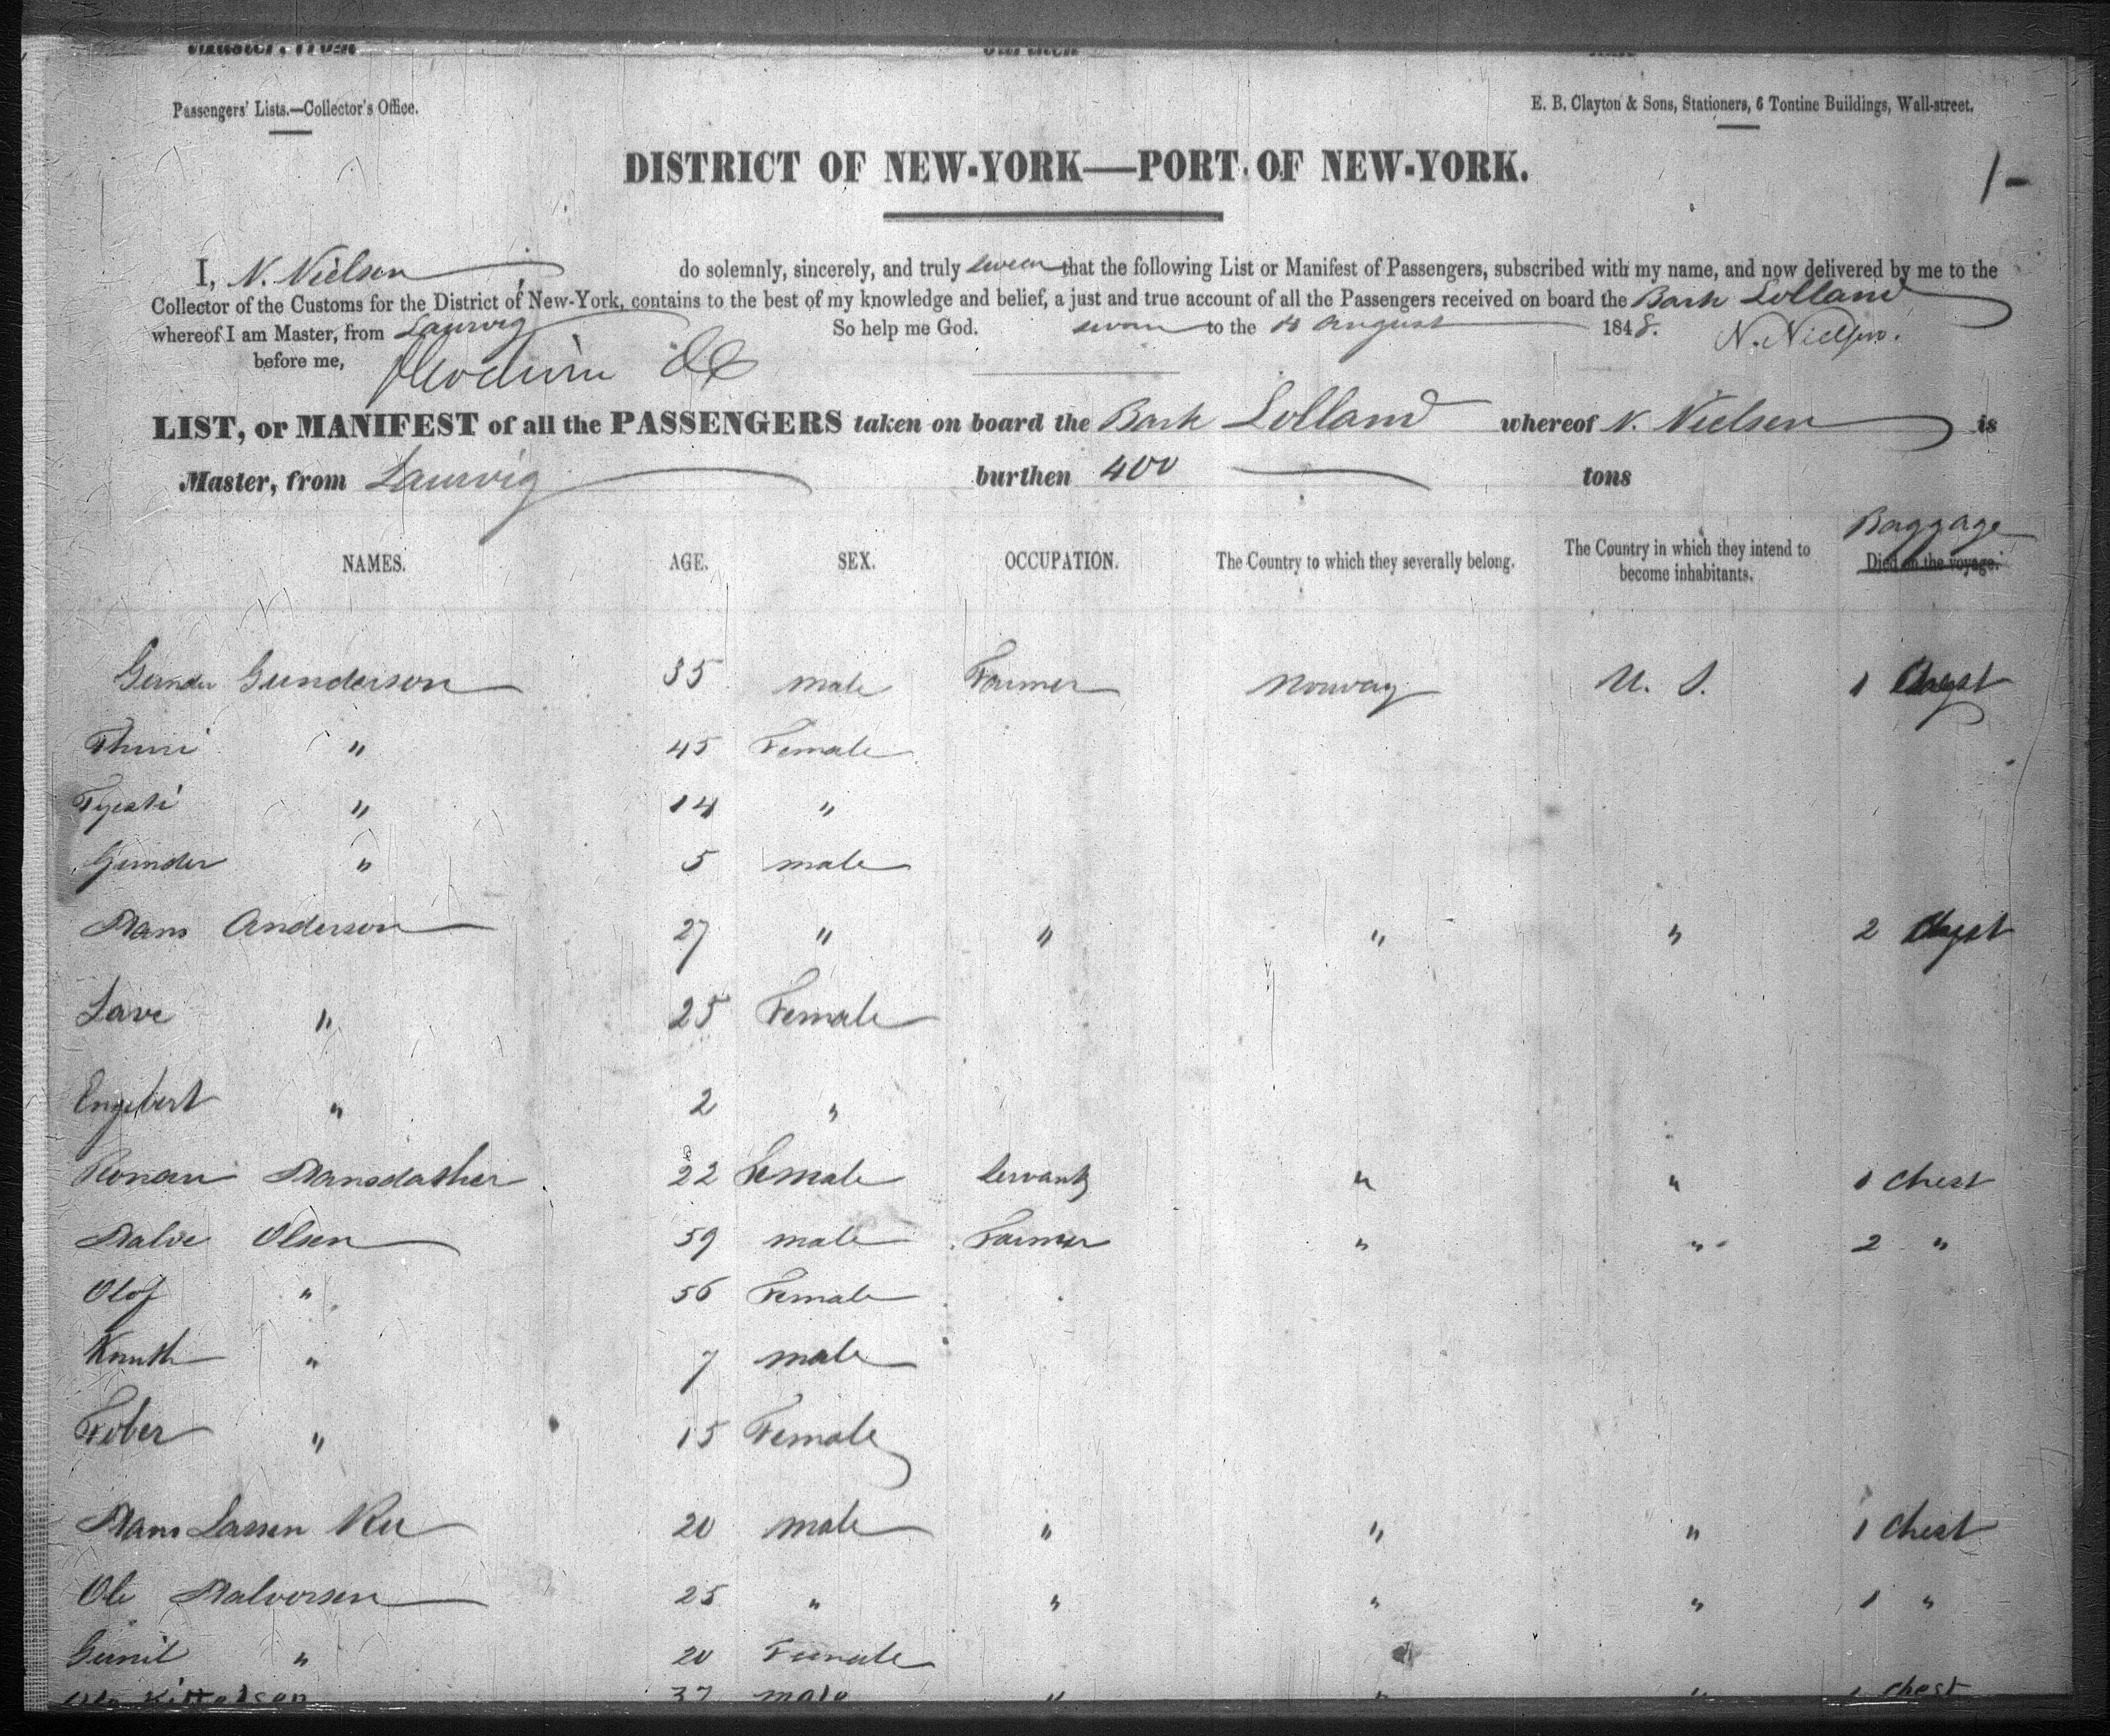 Master, from burthen
Passengers' Lists.—Collector's Office. E. B. Clayton & Sons, Stationers, 6 Tontine Buildings, Wall-street.
DISTRICT OF NEW-YORK—PORT OF NEW-YORK.
1-
I, N. Nielsen do solemnly, sincerely, and truly swear that the following List or Manifest of Passengers, subscribed with my name, and now delivered by me to the
Collector of the Customs for the District of New-York, contains to the best of my knowledge and belief, a just and true account of all the Passengers received on board the Bark Lolland
whereof I am Master, from Laurvig So help me God. sworn to the August 1848. N. Nielsen.
before me,
LIST, or MANIFEST of all the PASSENGERS taken on board the Bark Lolland whereof N. Nielsen is
Master, from Laurvig burthen 400 tons
Baggage
NAMES. AGE. SEX. OCCUPATION. The Country to which they severally belong. The Country in which they intend to become inhabitants. Died on the voyage.
Gunder Gunderson 35 male Farmer Norway U. S. 1
Thuri " 45 Female
" 14 "
Gunder " 5 male
Hans Anderson 27 " " " " 2
Lave " 25 Female
Engebert " 2 "
Ronau Hansdather 22 Female Servant " " 1 Chest
Halve Olsen 59 male Farmer " " 2 "
Olof " 56 Female
Knuth " 7 male
Tober " 15 Female
Hans Lassen Ru 20 male " " " 1 Chest
Ole Halversen 25 " " " " 1 "
Gunil " 20 Female
Ole Kittelsen 37 male " " " 1 chest